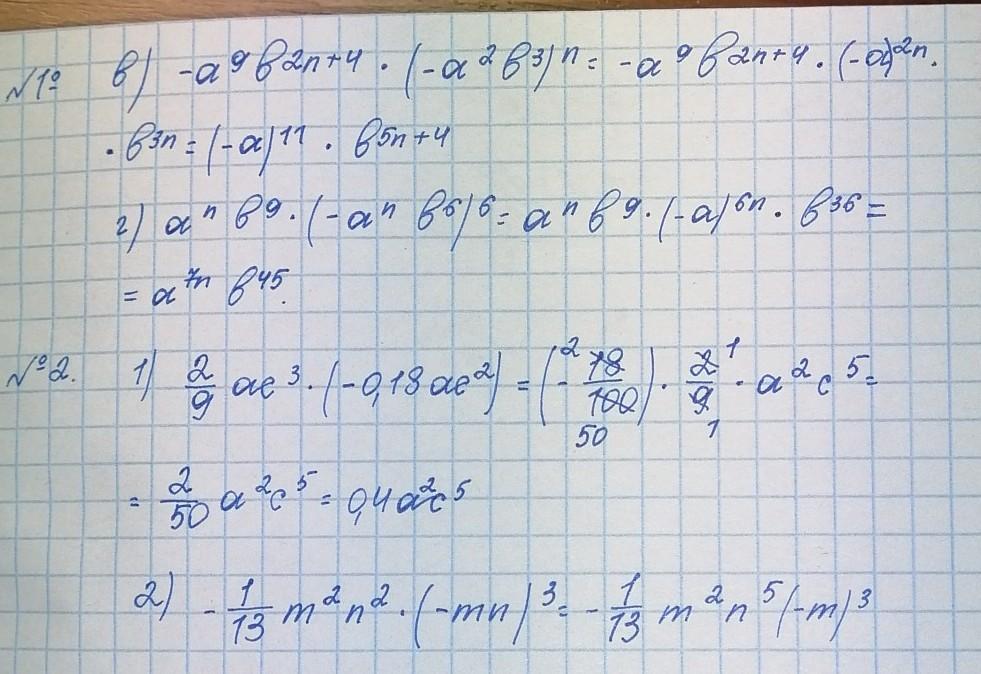 №1° в) -a⁹b²ⁿ⁺⁴ · (-a²b³)ⁿ = -a⁹b²ⁿ⁺⁴ · (-a)²ⁿ ·
· b³ⁿ = (-a)¹¹ · b⁵ⁿ⁺⁴
г) aⁿb⁹ · (-aⁿb⁶)⁶ = aⁿb⁹ · (-a)⁶ⁿ · b³⁶ =
= a⁷ⁿ b⁴⁵.
№2. 1) 2/9 ac³ · (-0,18ac²) = (- ²18/100 50) · 2 1/9 1 · a²c⁵ =
= 2/50 a²c⁵ = 0,4a²c⁵
2) - 1/13 m²n² · (-mn)³ = - 1/13 m²n⁵(-m)³